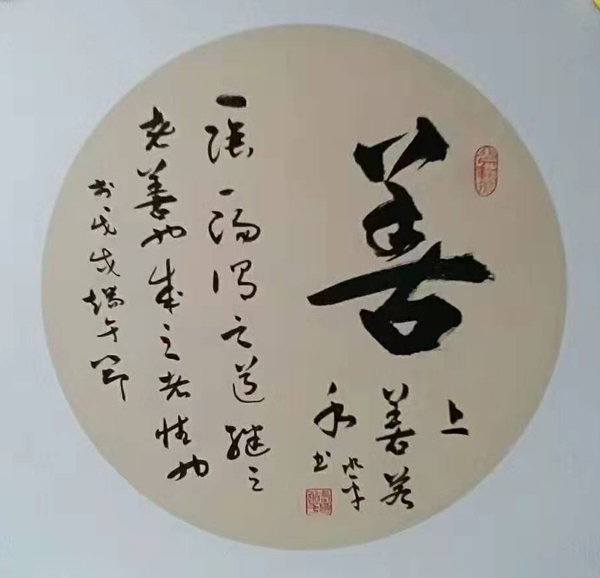 善
上
善若
水
书
一陰一陽谓之道继之
者善也成之者性也
戊戌端午節